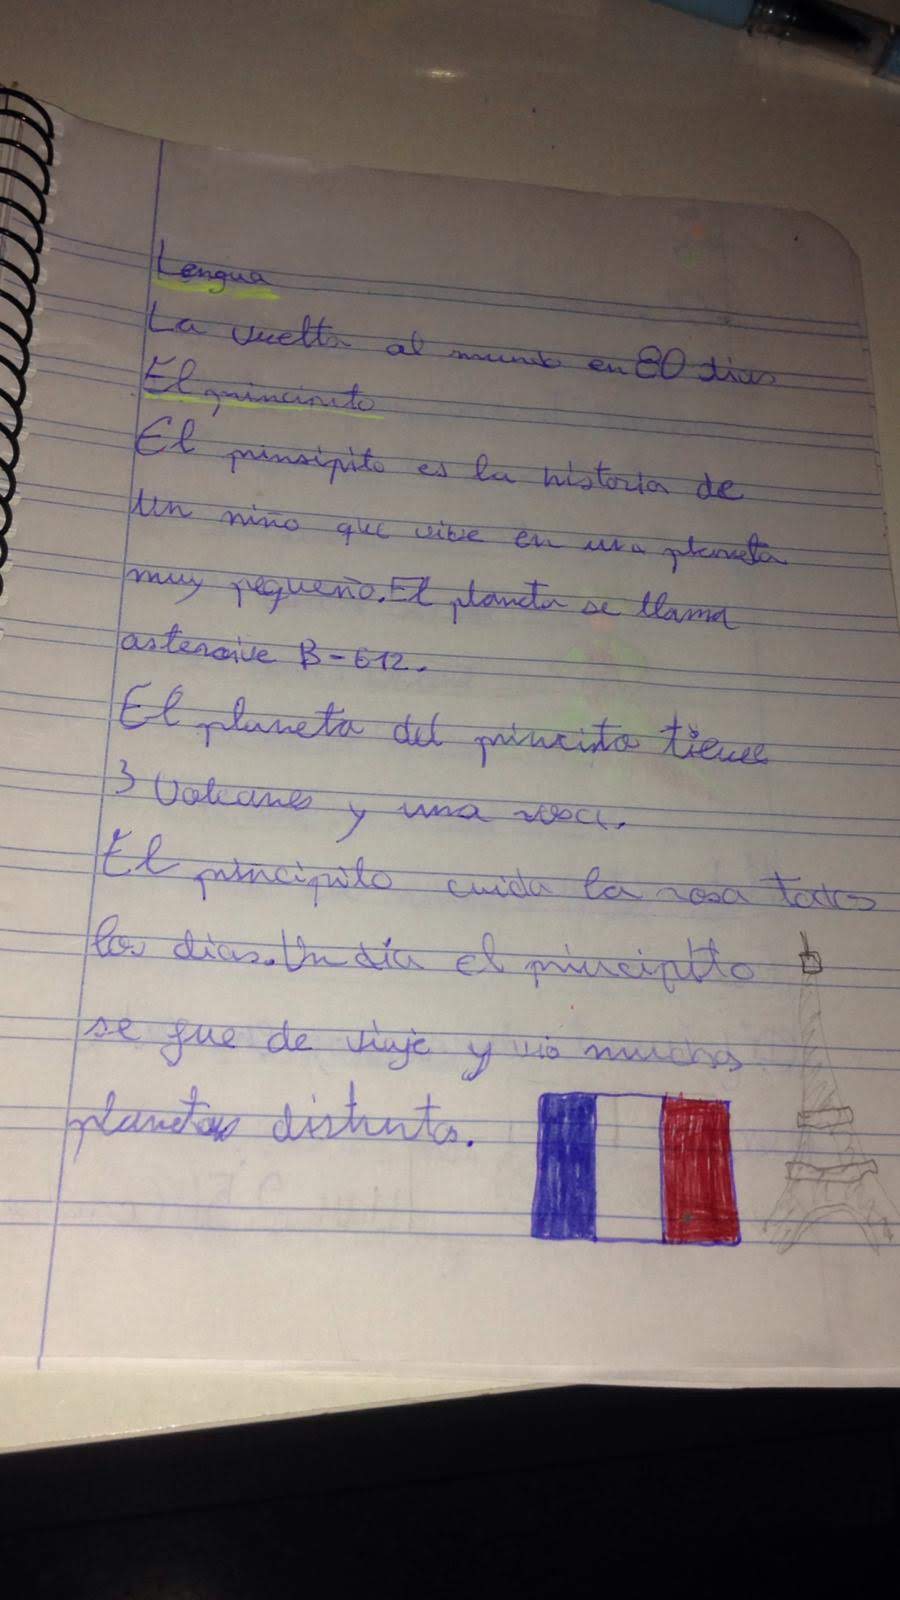 Lengua
La vuelta al mundo en 80 dias
El principito
El prinsipito es la historia de
un niño que vive en una planeta
muy pequeño. El planeta se llama
asteroive B-612.
El planeta del principito tienee
3 Volcanes y una rosa.
El principito cuida la rosa todos
los dias. Un día el principito
se fue de viaje y vio muchos
planetas distintos.